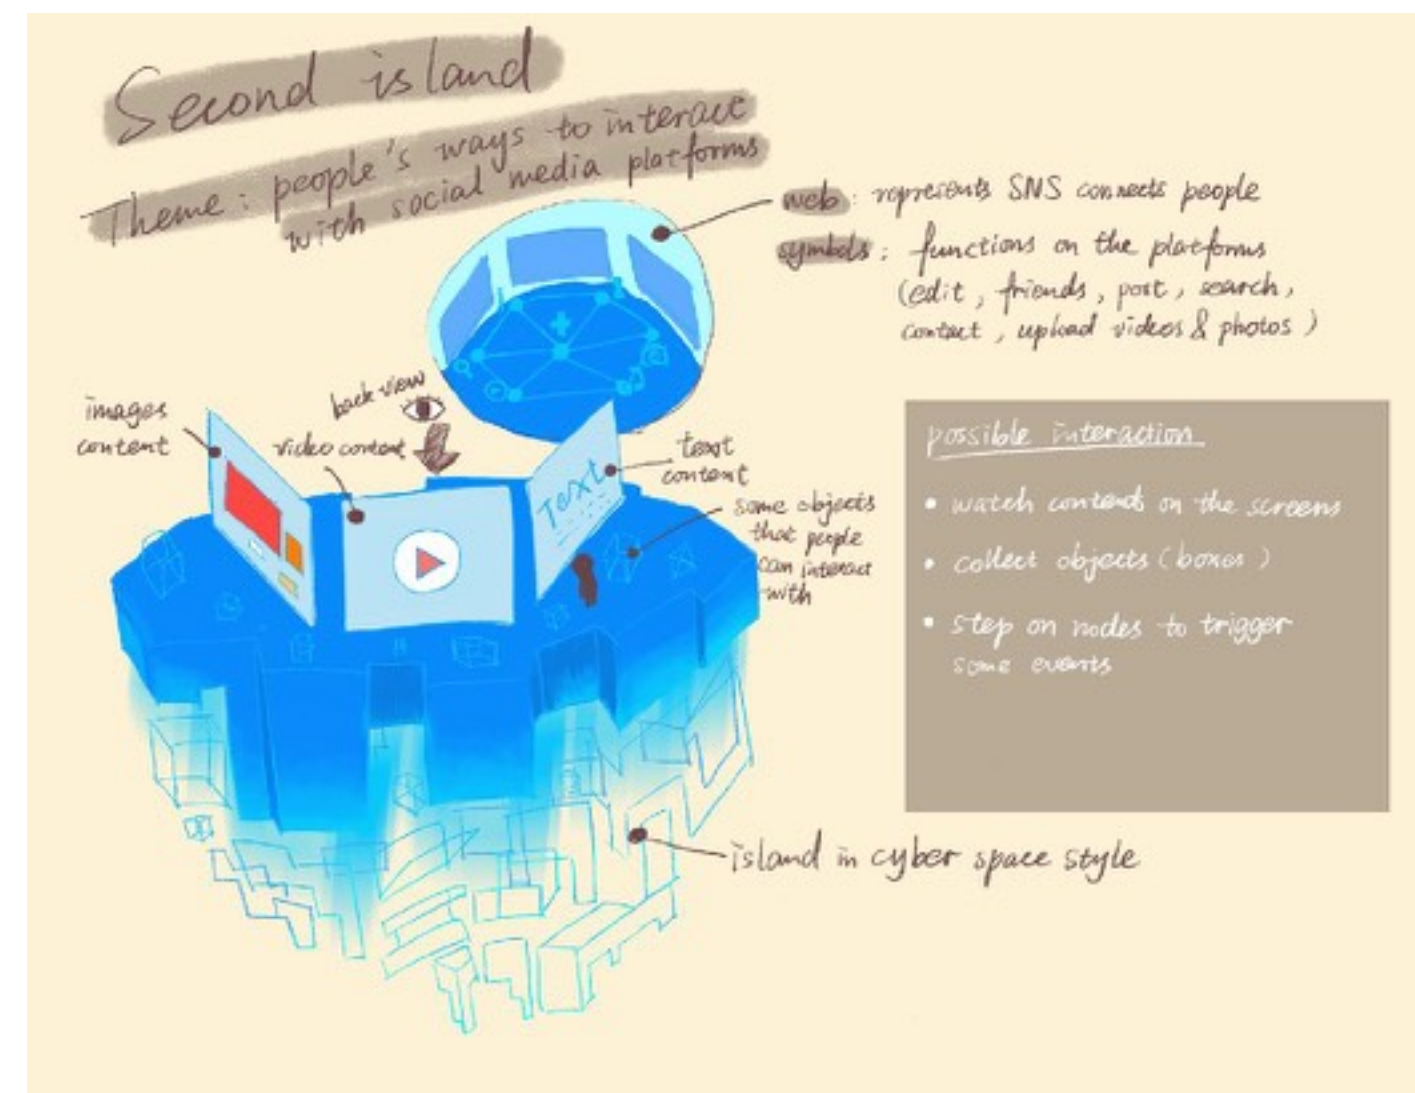 Second island
Theme: people's ways to interact
with social media platforms
web: represents SNS connects people
symbols: functions on the platforms
(edit, friends, post, search,
contact, upload videos & photos)
back view
images
content
video content
text
content
Text
some objects
that people
can interact
with
possible interaction
• watch content on the screens
• collect objects (boxes)
• step on nodes to trigger
some events
island in cyber space style